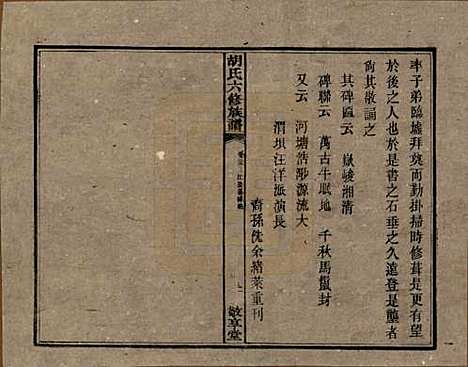 率子弟臨墟拜奠而勤掛掃時修葺是更有望
於後之人也於是書之石垂之久遠登是壟者
尙其敬誦之
其碑匾云　嶽峻湘清
碑聯云　萬古牛眠地　千秋馬鬣封
又云　河塘浩渺源流大
渭垻汪洋派演長
裔孫 重刊
胡氏六修族譜
敬享堂